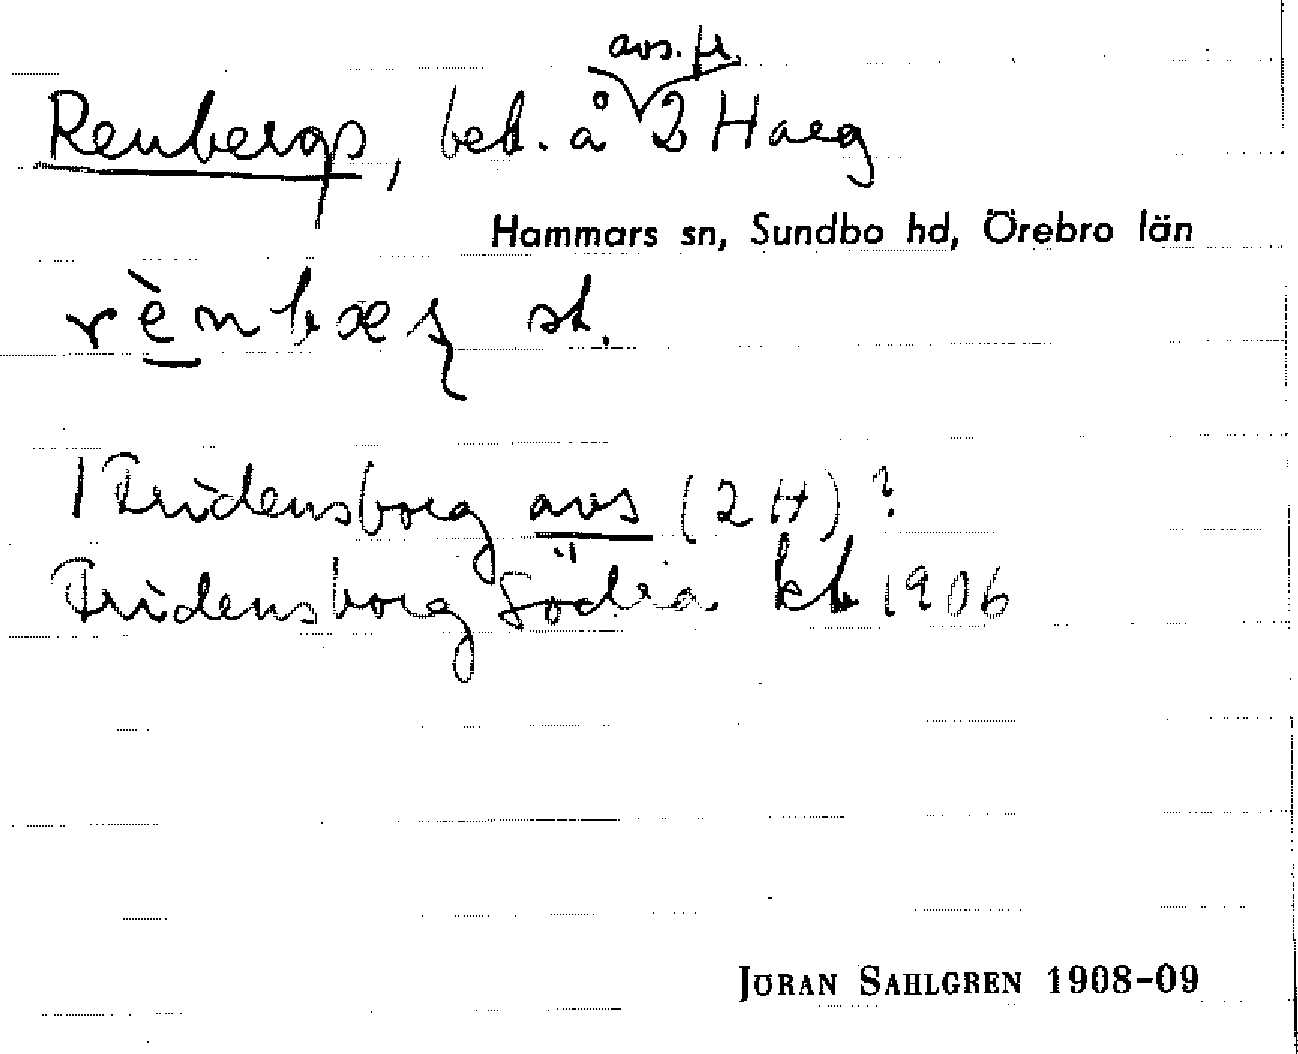 avs. fr.
Renbergs, bet. å 2 Harg
Hammars sn, Sundbo hd, Örebro län
st.
1 Fridensborg avs (2 H) ?
Fridensborg Södra kb 1906
JÖRAN SAHLGREN 1908-09